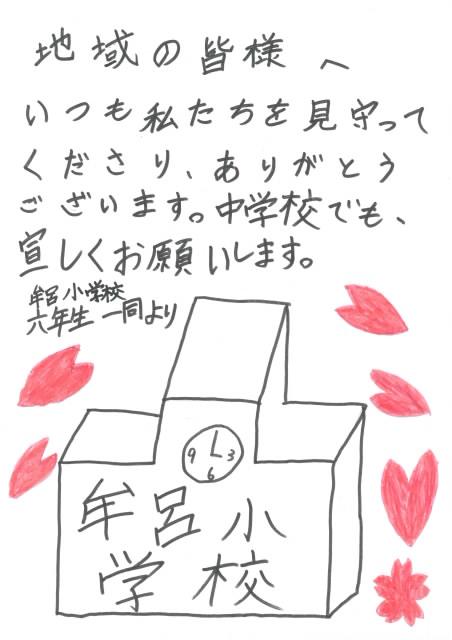 地域の皆様へ
いつも私たちを見守って
くださり、ありがとう
ございます。中学校でも、
宜しくお願いします。
牟呂小学校
六年生一同より
9 3
6
牟呂小
学校